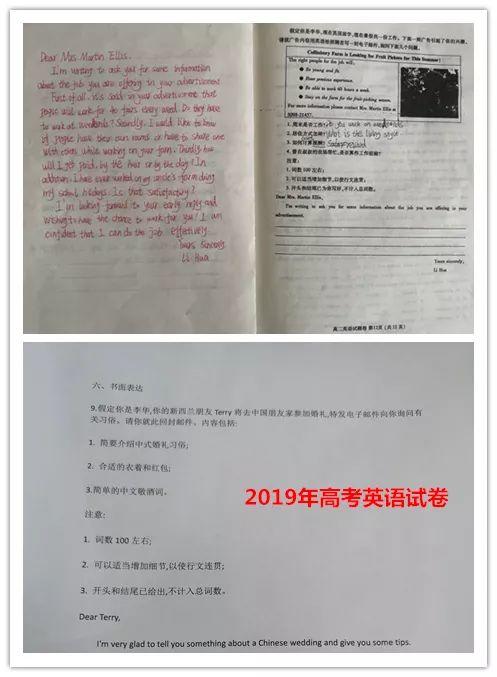 Dear Mrs Martin Ellis.
I'm writing to ask you for some information
about the job you are offering in your advertisement
First of all. it's said in your advertisement that
people will work for 40 hours every week. Do they have
to work at weekends? Secondly. I would like to know
if people have their own rooms or have to share one
with others while working on your farm. Thirdly how
will I get paid, by the hour or by the day? In
addition. I have ever worked on my uncle's farm during
my school holidays. Is that satisfactory?
I'm looking forward to your early reply and
wishing to have the chance to work for you! I am
confident that I can do the job effectively
Yours Sincerely
Li Hua
假定你是李华,现在英国留学,想在暑假找一份工作。下面一则广告引起了你的兴趣。
请就广告内容用英语给招聘者写一封电子邮件,询问下面几个问题。
Collinberry Farm is Looking for Fruit Pickers for This Summer!
The right people for the job will:
Be young and fit.
Have previous experience.
Be able to work 40 hours a week.
Stay on the farm for the fruit-picking season.
For more information please contact Mrs. Martin Ellis at
1.周末是否工作? Do you work on weekends
2.居住方式怎样? What is the living style
3.如何计算报酬?
注意:
1.词数 100 左右;
2.可以适当增加细节,以使行文连贯;
3.开头和结尾已为你写好,不计入总词数。
Dear Mrs. Martin Ellis,
I'm writing to ask you for some information about the job you are offering in your
advertisement.
Yours sincerely,
Li Hua
高二英语试题卷 第12页(共12页)
六、书面表达
9.假定你是李华,你的新西兰朋友 Terry 将去中国朋友家参加婚礼,特发电子邮件向你询问有
关习俗。请你就此回封邮件。内容包括:
1. 简要介绍中式婚礼习俗;
2. 合适的衣着和红包;
3.简单的中文敬酒词。
2019年高考英语试卷
注意:
1. 词数 100 左右;
2. 可以适当增加细节,以使行文连贯;
3. 开头和结尾已给出,不计入总词数。
Dear Terry,
I'm very glad to tell you something about a Chinese wedding and give you some tips.